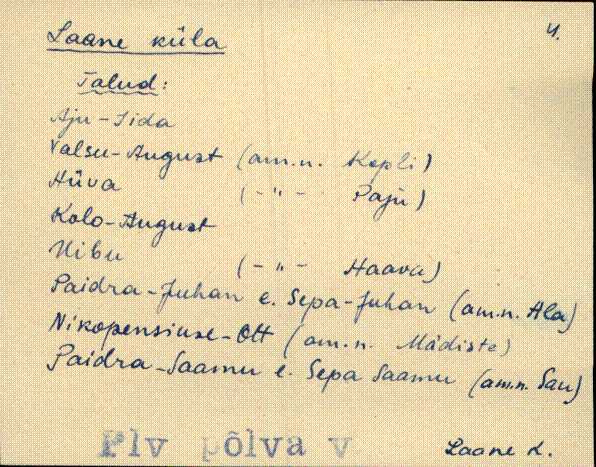 4.
Laane küla
Talud:
Aju-Iida
Valsu-August (am.n. Kopli)
Hüva (-"- Paju)
Kolo-August
Nibu (-"- Haava)
Paidra-Juhan e. Sepa-Juhan (am.n. Ala)
Nikopensiuse-Ott (am.n. Mädiste)
Paidra-Saamu e. Sepa Saamu (am.n. Sau)
Plv põlva v
Laane k.